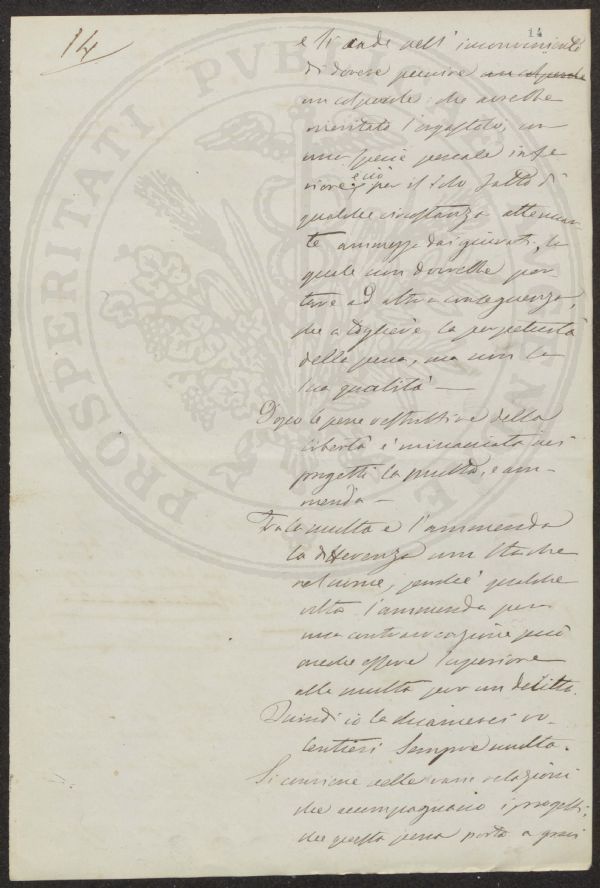 14
14
e si cade nell'inconveniente
di dovere punire un colpevole
un colpevole che avrebbe
meritato l'ergastolo, con
una specie penale infe
riore, e ciò per il solo fatto di
qualche circostanza attenuan
te ammessa dai giurati, la
quale non dovrebbe por
tare ad altra conseguenza,
che a togliere la perpetuità
della pena, ma non la
sua qualità —
Dopo le pene restrittive della
libertà è minacciata nei
progetti la multa, e am
menda —
Fra la multa e l'ammenda
la differenza non sta che
nel nome, perchè qualche
volta l'ammenda per
una contravvenzione può
anche essere superiore
alla multa per un delitto.
Quindi io la chiamerei vo-
lentieri sempre multa.
Si conviene nelle varie relazioni
che accompagnano i progetti,
che questa pena porta a gravi
PROSPERITATI PUBLICAE